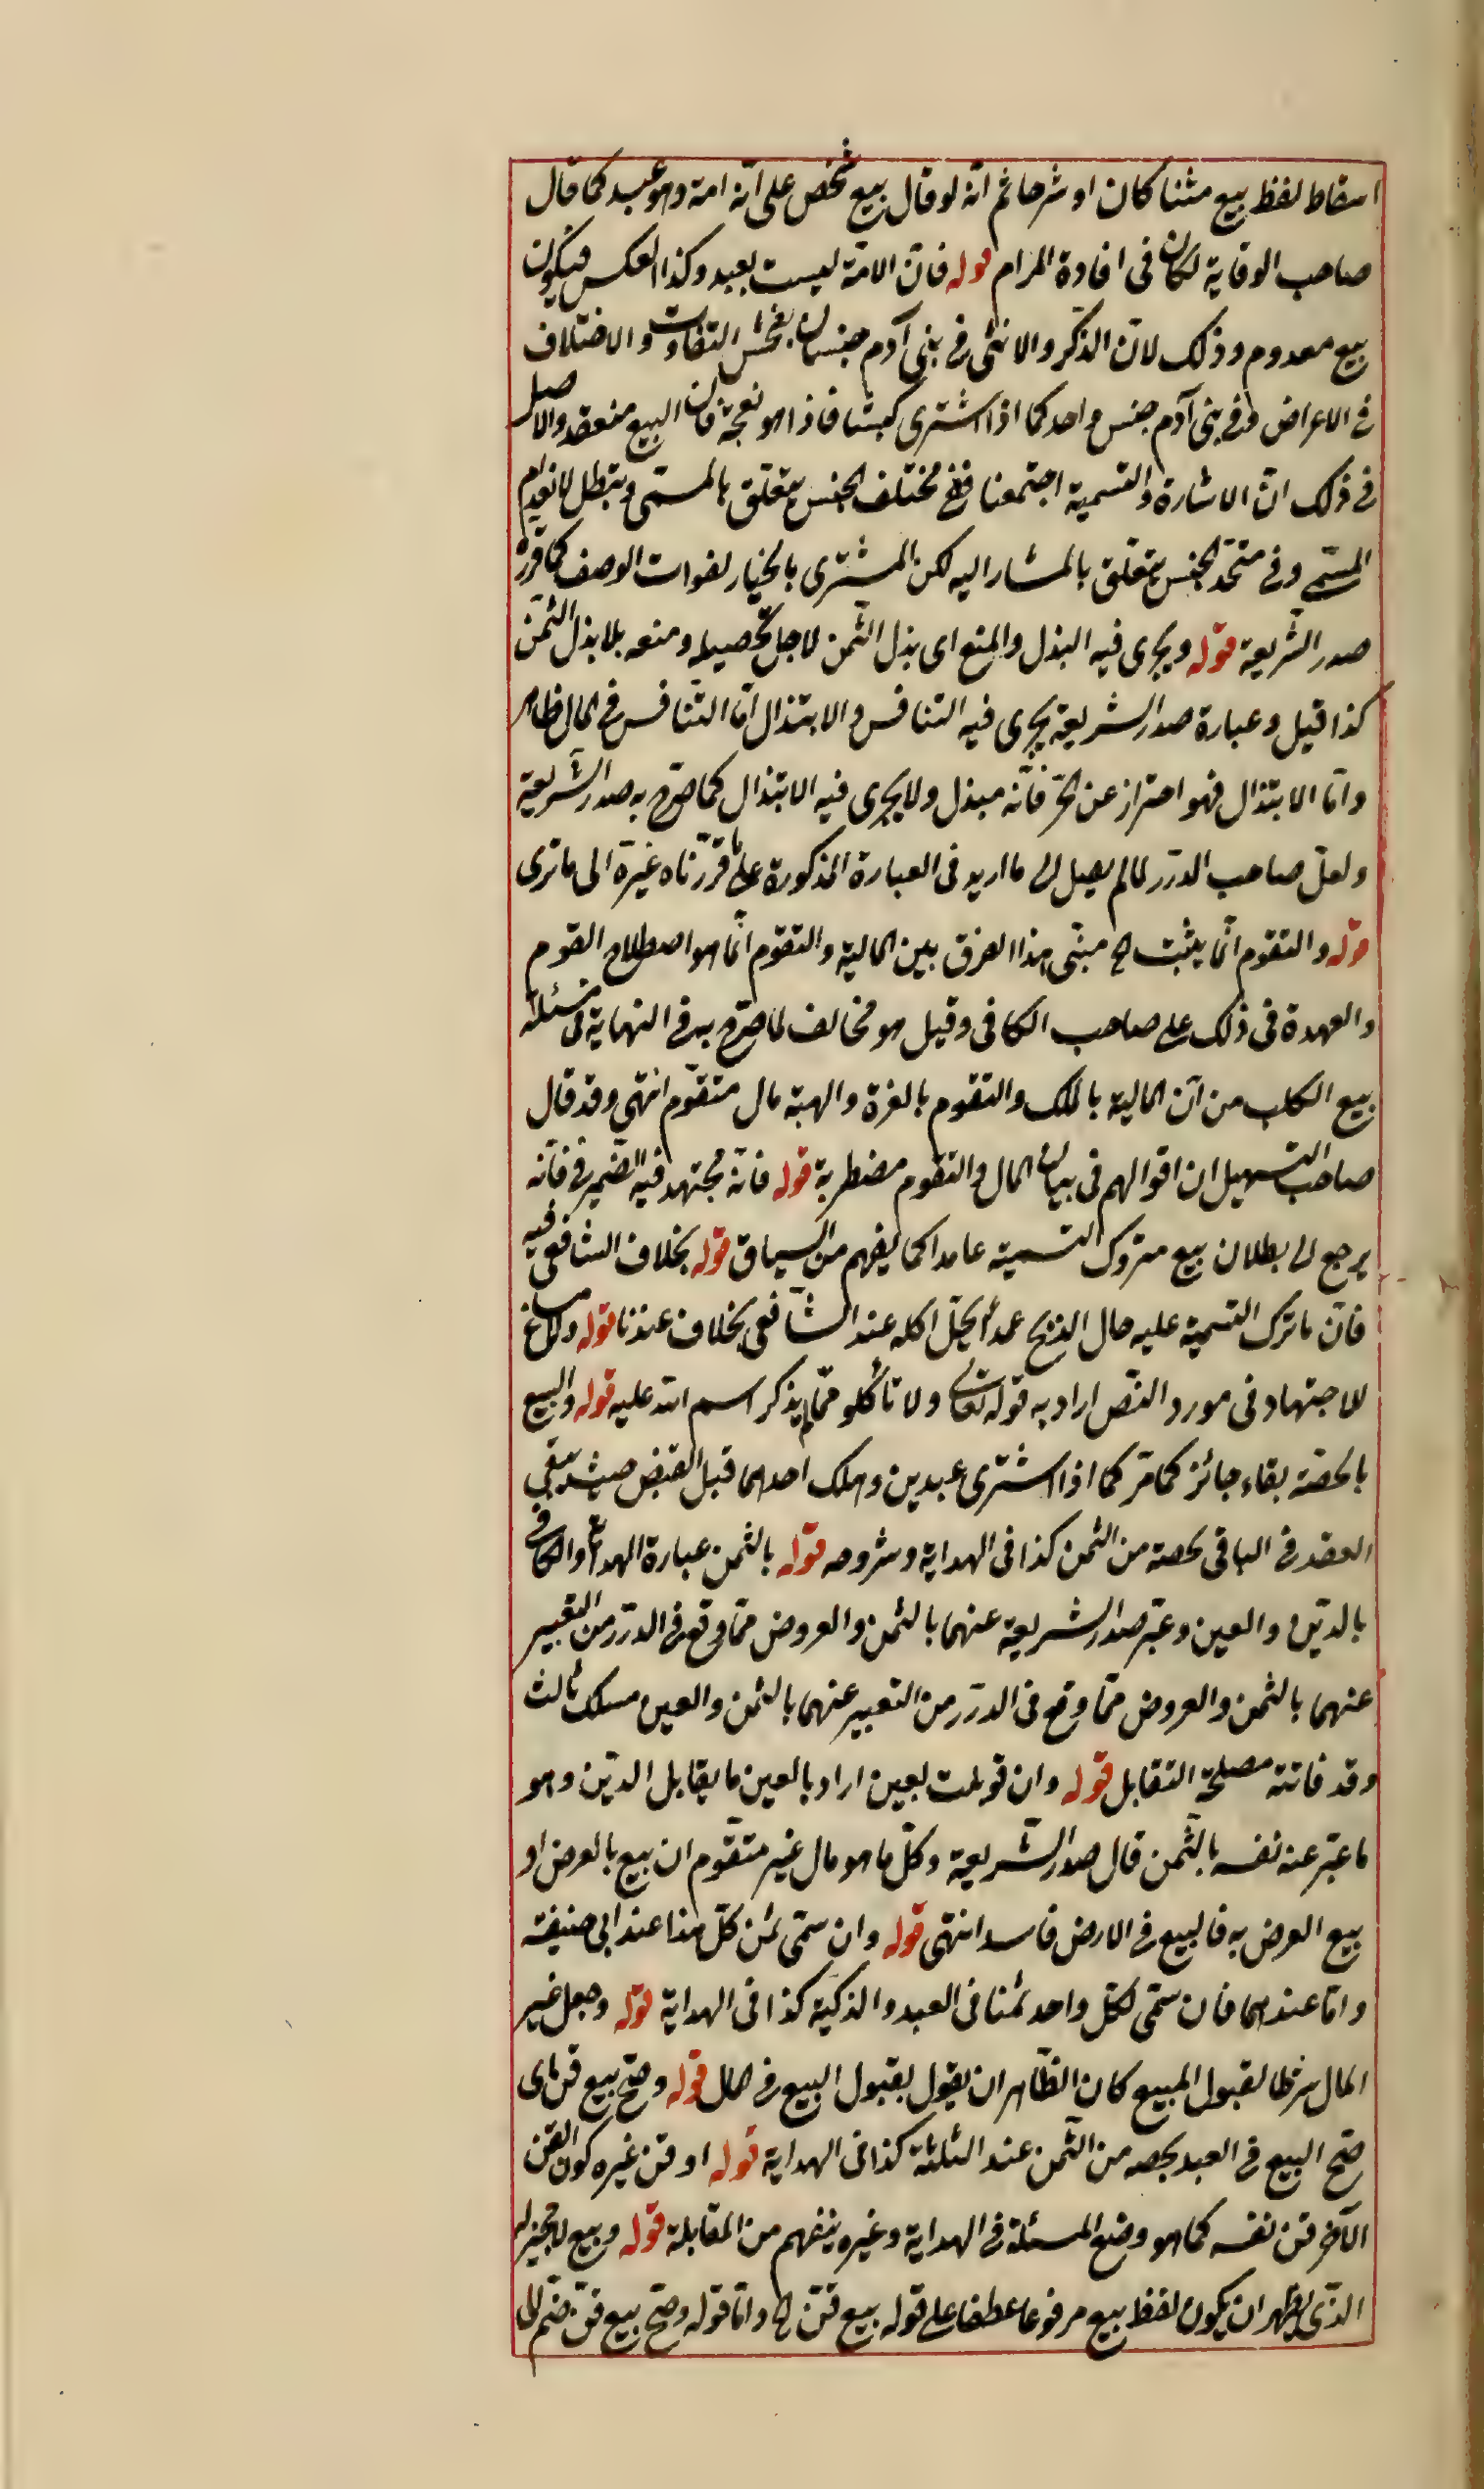 اسقاط لفظ بيع متنا كان او شرحا ثم انه لو قال بيع شخص على انه امة وهو عبد كما قال
صاحب الوقاية لكان فى افادة المرام قوله فان الامة ليست بعبد وكذا العكس فيكون
بيع معدوم وذلك لان الذكر والانثى فى بنى آدم جنسان بفحش التفاوت والاختلاف
فى الاعراض وفى بنى آدم جنس واحد كما اذا اشترى كبشا فاذا هو نعجة فان البيع منعقد والاصل
فى ذلك ان الاشارة والتسمية اجتمعنا ففى مختلف الجنس يتعلق بالمسمى ويبطل لانعدام
المسمى وفى متحد الجنس يتعلق بالمشار اليه لكن المشترى بالخيار لفوات الوصف كما قرره
صدر الشريعة قوله ويجرى فيه البذل والمنع اى بذل الثمن لاجل تحصيله ومنعه بلا بذل الثمن
كذا قيل وعبارة صدر الشريعة يجرى فيه التنافس والابتذال اما التنافس فى المال ظاهر
واما الابتذال فهو احتراز عن الحر فانه مبذل ولا يجرى فيه الابتذال كما صرح به صدر الشريعة
ولعل صاحب الدرر لما لم يصل الى ما اريد فى العبارة المذكورة على ما قررناه غيره الى ما ترى
قوله والتقوم انما يثبت الخ مبنى هذا الفرق بين المالية والتقوم انما هو اصطلاح القوم
والعهدة فى ذلك على صاحب الكافى وقيل هو مخالف لما صرح به فى النهاية فى مسئلة
بيع الكلب من ان المالية بالملك والتقوم بالعزة والهبة مال متقوم انتهى وقد قال
صاحب التسهيل ان اقوالهم فى بيان المال والتقوم مضطربة قوله فانه مجتهد فيه الضمير فى فانه
يرجع الى بطلان بيع متروك التسمية عامدا كما يفهم من السياق قوله بخلاف الشافعى فيه
فان ما ترك التسمية عليه حال الذبح عمدا يحل اكله عند الشافعى بخلاف عندنا قوله ولا مساغ
للاجتهاد فى مورد النص اراد به قوله تعالى ولا تأكلوا مما لم يذكر اسم الله عليه قوله والبيع
بالحصة بقاء جائز كما مر كما اذا اشترى عبدين وهلك احدهما قبل القبض حيث يبقى
العقد فى الباقى بحصته من الثمن كذا فى الهداية وشروحه قوله بالثمن عبارة الهداية والكافى
بالدين والعين وعبر صدر الشريعة عنهما بالثمن والعروض مما وقع فى الدرر من التعبير
عنهما بالثمن والعروض مما وقع فى الدرر من التعبير عنهما بالثمن والعين مسلك ثالث
وقد فاتته مصلحة التقابل قوله وان قوبلت بعين اراد بالعين ما يقابل الدين وهو
ما عبر عنه نفسه بالثمن قال صدر الشريعة وكل ما هو مال غير متقوم ان بيع بالعرض او
بيع العرض به فالبيع فى الارض فاسد انتهى قوله وان سمى ثمن كل هذا عند ابى حنيفة
واما عندهما فان سمى لكل واحد ثمنا فى العبد والذكية كذا فى الهداية قوله وجعل غير
المال شرطا لقبول المبيع كان الظاهر ان يقول بقبول البيع فى المال قوله وصح بيع قن اى
صح البيع فى العبد بحصه من الثمن عند الثلثة كذا فى الهداية قوله او قن غيره كون القن
الآخر قن نفسه كما هو وضع المسئلة فى الهداية وغيره ينفهم من المقابلة قوله وبيع لا يجيز له
الذى يظهر ان يكون لفظ بيع مرفوعا عطفا على قوله بيع قن الخ واما قوله وصح بيع قن ضم الى